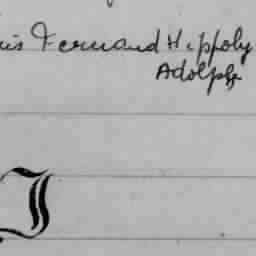 is Fernand Hippoly
Adolphe
J